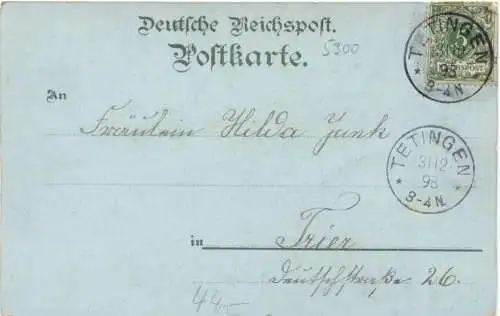 Deutsche Reichspost.
Postkarte.
5300
TETINGEN
5
98
3-4N.
An
Fräulein Hilda Junk
TETINGEN
31 12
98
3-4N.
in Trier
Deutschstraße 26.
44-